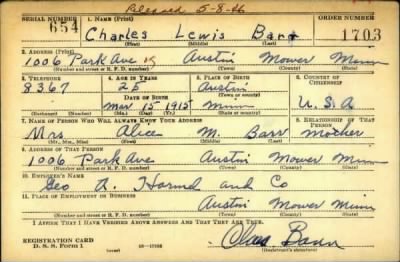 Released 5-8-46
SERIAL NUMBER 1. NAME (Print) ORDER NUMBER
654 Charles Lewis Barr 1703
(First) (Middle) (Last)
2. ADDRESS (Print)
1006 Park Ave Austin Mower Minn
(Number and street or R. F. D. number) (Town) (County) (State)
3. TELEPHONE 4. AGE IN YEARS 5. PLACE OF BIRTH 6. COUNTRY OF CITIZENSHIP
8367 25 Austin
DATE OF BIRTH (Town or county)
Mar 15 1915 Minn U.S.A
(Exchange) (Number) (Mo.) (Day) (Yr.) (State or country)
7. NAME OF PERSON WHO WILL ALWAYS KNOW YOUR ADDRESS 8. RELATIONSHIP OF THAT PERSON
Mrs Alice M. Barr mother
(Mr., Mrs., Miss) (First) (Middle) (Last)
9. ADDRESS OF THAT PERSON
1006 Park Ave Austin Mower Minn
(Number and street or R. F. D. number) (Town) (County) (State)
10. EMPLOYER'S NAME
Geo A. Hormel and Co
11. PLACE OF EMPLOYMENT OR BUSINESS
Austin Mower Minn
(Number and street or R. F. D. number) (Town) (County) (State)
I AFFIRM THAT I HAVE VERIFIED ABOVE ANSWERS AND THAT THEY ARE TRUE.
REGISTRATION CARD
D. S. S. Form 1
Chas Barr